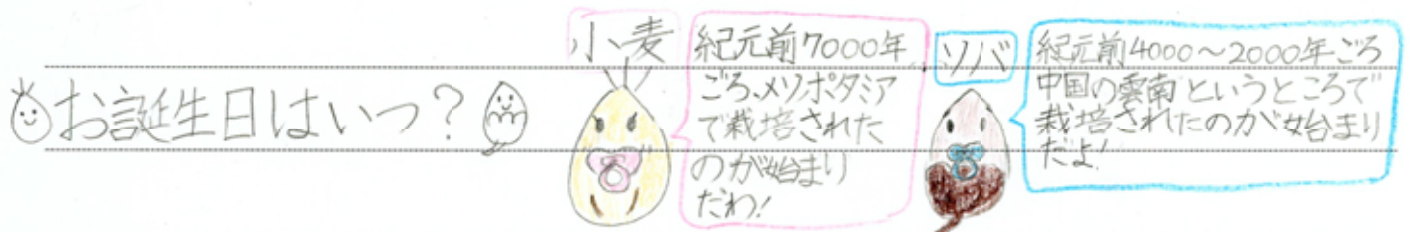 お誕生日はいつ?
小麦
紀元前7000年
ごろ、メソポタミア
で栽培された
のが始まり
だわ!
ソバ
紀元前4000〜2000年ごろ
中国の雲南というところで
栽培されたのが始まり
だよ!